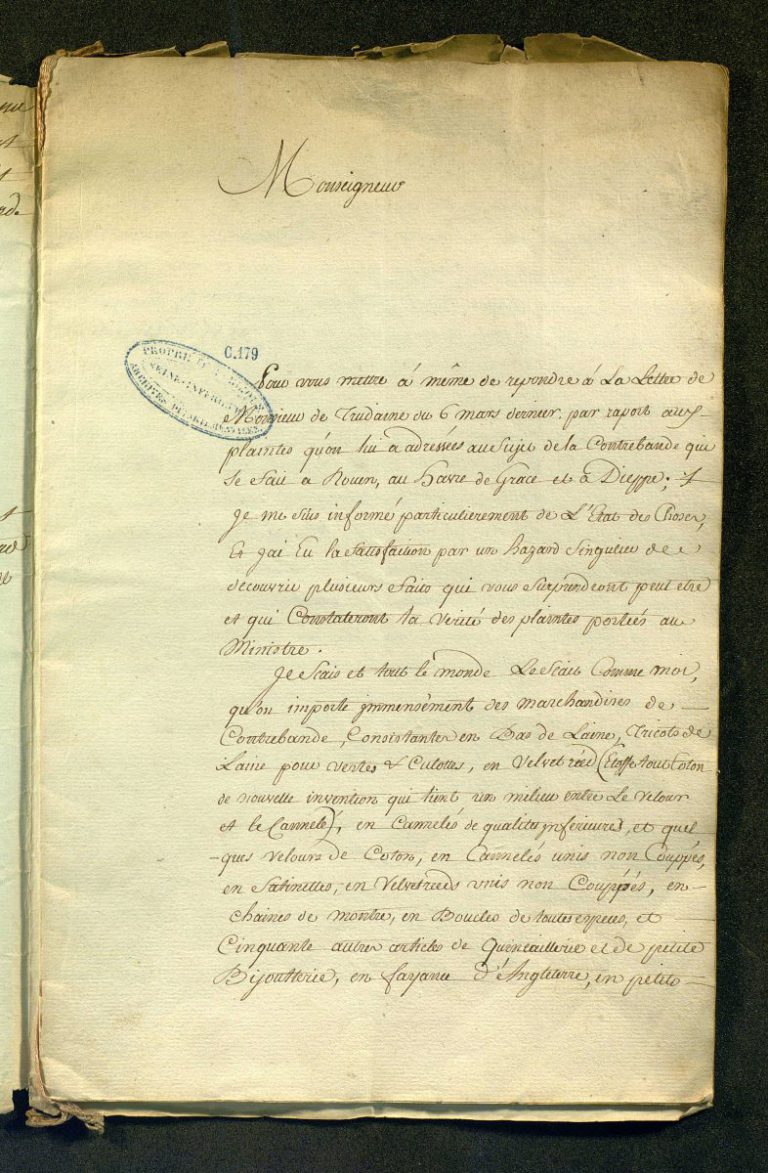 Monseigneur
C.179
PROPRIÉTÉ
SEINE-INFERIEURE
ARCHIVES DÉPARTEMENTALES
Pour vous mettre à même de repondre à La Lettre de
Monsieur de Trudaine du 6 mars dernier, par raport aux
plaintes qu'on lui a adressées au Sujet de la Contrebande qui
se fait a Rouen, au havre de Grace et à Dieppe;
Je me suis informé particulierement de L'Etat des Choses,
Et j'ai Eu la Satisfaction par un hazard Singulier de
decouvrir plusieurs faits qui vous Surprendront peut etre
et qui Constateront la verité des plaintes portées au
Ministre.
Je Scais et tout le monde Le Scait Comme moi,
qu'on importe jmmensément des marchandises de
Contrebande, Consistantes en Bas de Laine, Tricots de
Laine pour vestes & Culottes, en Velvet réed (Etoffe tout Coton
de nouvelle invention qui tient un milieu entre Le Velour
et le Cannelé), en Cannelés de qualités jnférieures, et quel
-ques velours de Coton, en Cannelés unis non Couppés,
en Satinettes, en Velvetreeds unis non Couppés, en
chaines de montre, en Boucles de toutes especes, et
Cinquante autres articles de Quincaillerie et de petite
Bijoutterie, en fayance d'Angleterre, en petits